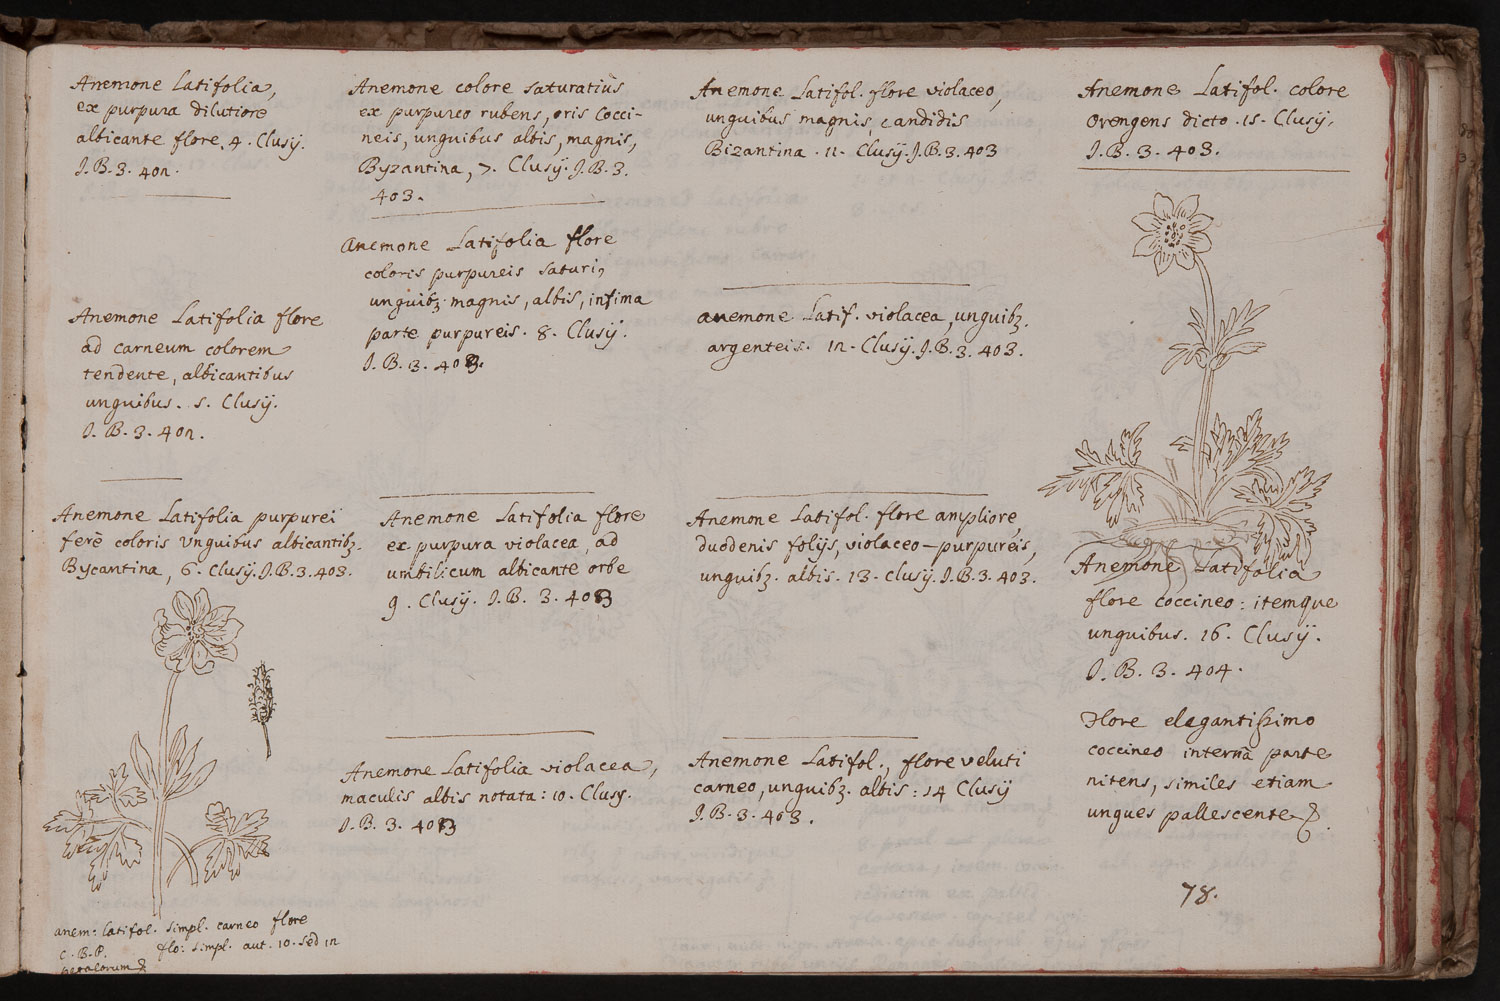 Anemone Latifolia,
ex purpura dilutiore
albicante flore. 4. Clusÿ.
J. B. 3. 402.
Anemone Latifolia flore
ad carneum colorem
tendente, albicantibus
unguibus. 5. Clusÿ.
J. B. 3. 402.
Anemone Latifolia purpurei
ferè coloris Unguibus albicantibꝫ.
Bycantina, 6. Clusÿ. J. B. 3. 403.
anem: latifol. simpl. carneo flore
C. B. P. flo: simpl. aut. 10. sed 12
petalorum &
Anemone colore saturatiùs
ex purpureo rubens, oris Cocci-
neis, unguibus albis, magnis,
Byzantina, 7. Clusÿ. J. B. 3.
403.
Anemone Latifolia flore
coloris purpureis saturi,
unguibꝫ magnis, albis, infima
parte purpureis. 8. Clusÿ.
J. B. 3. 403.
Anemone Latifolia flore
ex purpura violacea, ad
umbilicum albicante orbe
9. Clusÿ. J. B. 3. 403
Anemone Latifolia violacea,
maculis albis notata: 10. Clusÿ.
J. B. 3. 403
Anemone Latifol. flore violaceo,
unguibus magnis, candidis
Bizantina. 11. Clusÿ. J. B. 3. 403
anemone Latif. violacea, unguibꝫ.
argenteis. 12. Clusÿ. J. B. 3. 403.
Anemone Latifol. flore ampliore,
duodenis folÿs, violaceo-purpureis,
unguibꝫ. albis. 13. Clusÿ. J. B. 3. 403.
Anemone Latifol., flore veluti
carneo, unguibꝫ. albis: 14 Clusÿ
J. B. 3. 403.
Anemone Latifol. colore
Orengens dicto. 15. Clusÿ.
J. B. 3. 403.
Anemone Latifolia
flore coccineo: itemque
unguibus. 16. Clusÿ.
J. B. 3. 404.
Flore elegantißimo
coccineo internâ parte
nitens, similes etiam
ungues pallescente &.
78.